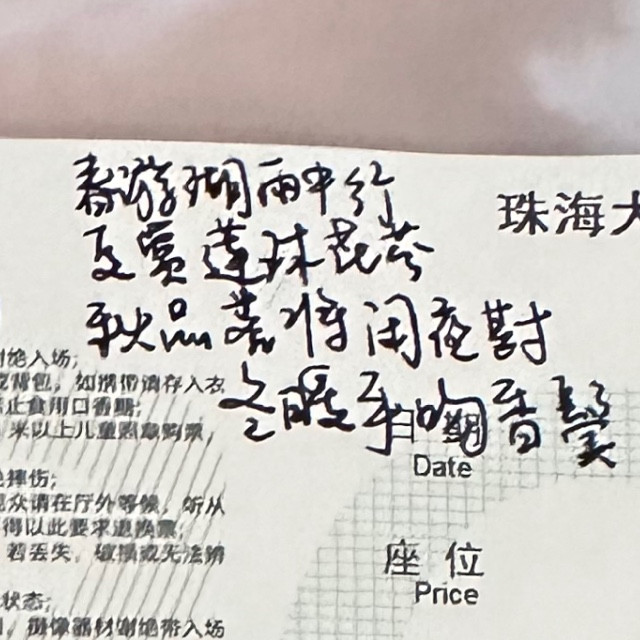 春游湖雨中行
珠海大
夏赏莲珠花琴
秋品茗情闲夜对
冬暖手吻香鬓
谢绝入场;
或背包,如携带请存入衣
止食用口香糖;
米以上儿童照章购票,
日期
Date
摔伤;
众请在厅外等候,听从
得以此要求退换票;
若丢失、破损或无法辨
座 位
Price
状态;
摄像器材谢绝带入场